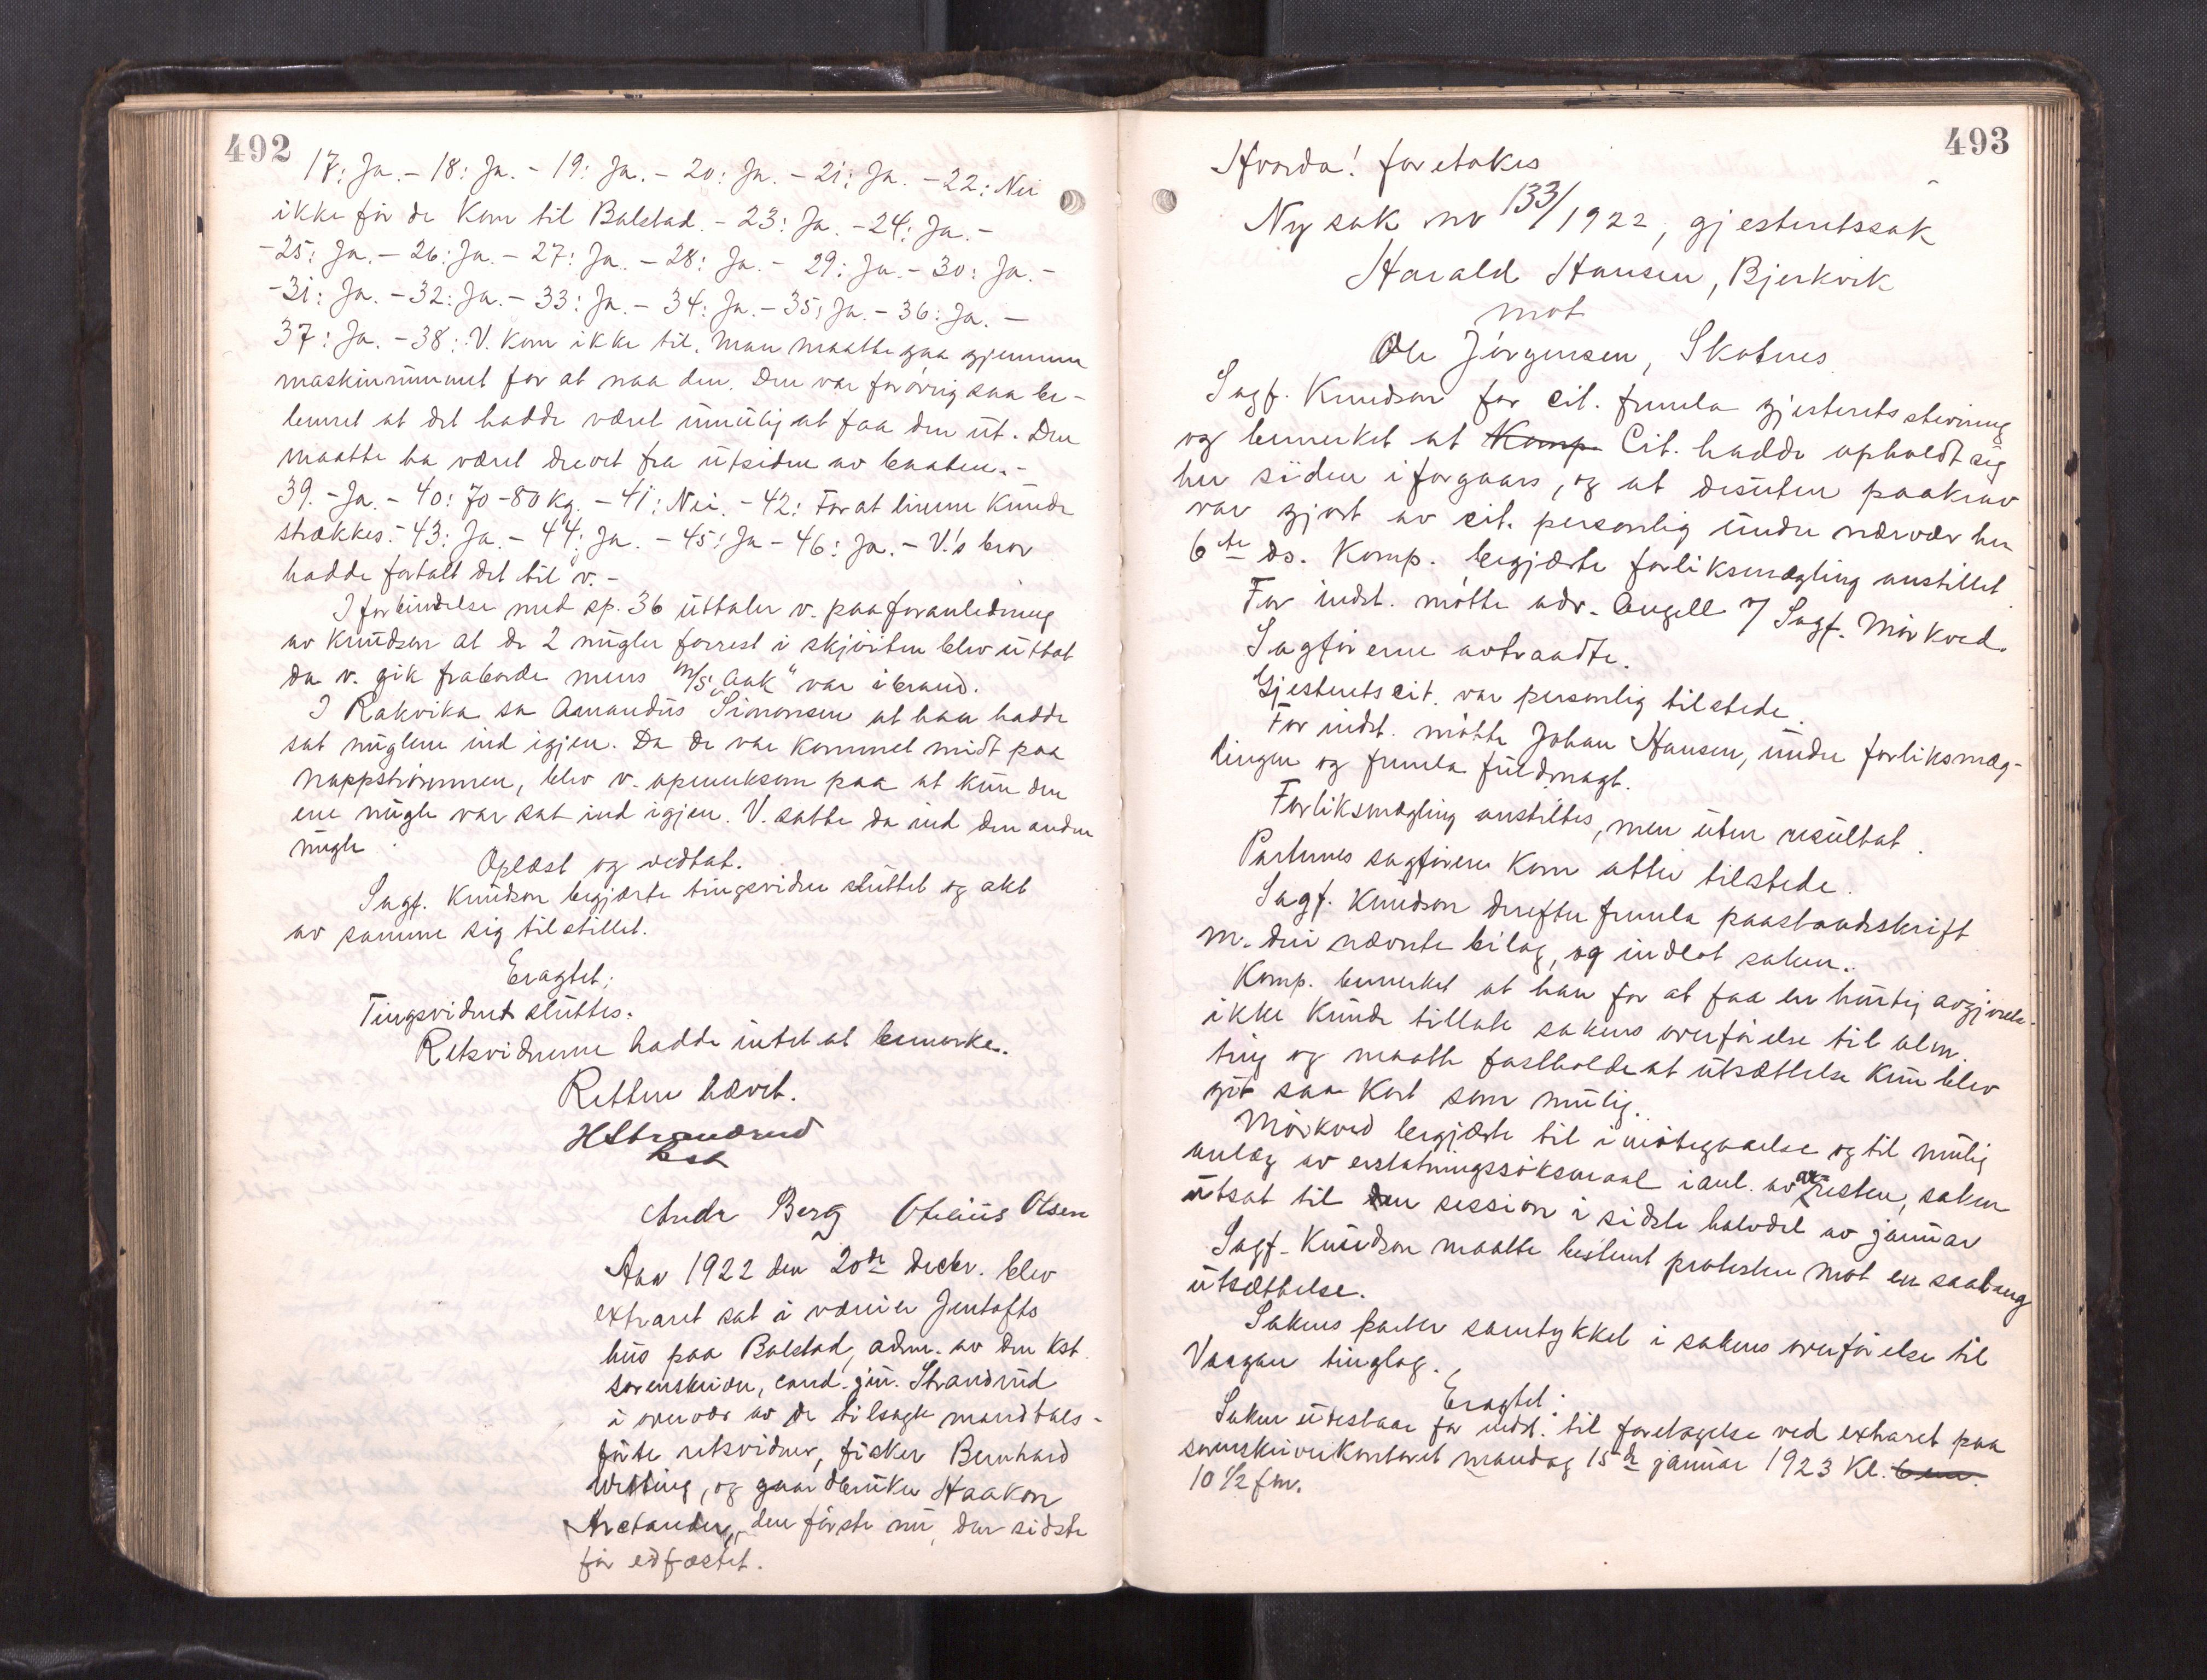 492
17: Ja. - 18: Ja. - 19: Ja. - 20: Ja. - 21: Ja. - 22: Nei
ikke før de kom til Balstad. - 23: Ja. - 24: Ja. -
- 25: Ja. - 26: Ja. - 27: Ja. - 28: Ja. - 29: Ja. - 30: Ja. -
- 31: Ja. - 32: Ja. - 33: Ja. - 34: Ja. - 35: Ja. - 36: Ja. -
37: Ja. - 38: V. kom ikke til. Man maatte gaa gjennem
maskinrummet for at naa den. Den var forøvrig saa be-
lemret at det hadde været umulig at faa den ut. Den
maatte ha været drevet fra utsiden av baaten. -
39. - Ja. - 40: 70-80 kg. - 41: Nei. - 42: For at linene kunde
strækkes. - 43: Ja. - 44: Ja. - 45: Ja - 46: Ja. - V.'s bror
hadde fortalt det til v. -
I forbindelse med sp. 36 uttaler v. paa foranledning
av Knudson at de 2 nugler forrest i skjøiten blev uttat
da v. gik fraborde mens M/S "Auk" var i brand.
I Rakvika sa Amandus Simonsen at han hadde
sat nuglene ind igjen. Da de var kommet midt paa
Nappstrømmen, blev v. opmerksom paa at kun den
ene nugle var sat ind igjen. V. satte da ind den anden
nugle.
Oplæst og vedtat.
Sagf. Knudson begjærte tingsvidnet sluttet og akt
av samme sig tilstillet.
Eragtet:
Tingsvidnet sluttes.
Retsvidnerne hadde intet at bemerke.
Retten hævet.
H Strandrud
kst
Andr Berg Otelius Olsen
Aar 1922 den 20de decbr. blev
extraret sat i værtier Jentofts
hus paa Balstad, adm. av den kst.
sorenskriver, cand. jur. Strandrud
i overvær av de tilsagte mandtals-
førte retsvidner, fisker Bernhard
Wetting, og gaardbruker Haakon
Arctander, den første nu, den sidste
før edfæstet.
493
Hvorda! foretakes
Ny sak nr 133/1922, gjesteretssak
Harald Hansen, Bjerkvik
mot
Ole Jørgensen, Skotnes.
Sagf. Knudson for cit. fremla gjesteretsstevning
og bemerket at Komp. Cit. hadde opholdt sig
her siden iforgaars, og at desuten paakrav
var gjort av cit. personlig under nærvær her
6te ds. Komp. begjærte forliksmægling anstillet.
For indst. møtte adv. Angell v/ Sagf. Mørkved.
Sagførerne avtraadte.
Gjesteretscit. var personlig tilstede.
For indst. møtte Johan Hansen, under forliksmæg-
lingen og fremla fuldmagt.
Forliksmægling anstiltes, men uten resultat.
Parternes sagførere kom atter tilstede.
Sagf. Knudson derefter fremla paastandsskrift
m. deri nævnte bilag, og indlot saken.
Komp. bemerket at han for at faa en hurtig avgjørelse
ikke kunde tillate sakens overførelse til alm.
ting og maatte fastholde at utsættelse kun blev
git saa kort som mulig.
Mørkved begjærte til imøtegaaelse og til mulig
anlæg av erstatningssøksmaal i anl. av arresten, saken
utsat til den session i sidste halvdel av januar
Sagf. Knudson maatte bestemt protestere mot en saa lang
utsættelse.
Sakens parter samtykket i sakens overførelse til
Vaagan tinglag.
Eragtet:
Saken utestaar for indst. til foretagelse ved extraret paa
sorenskriverkontoret mandag 15de januar 1923 kl.
10 1/2 fm.